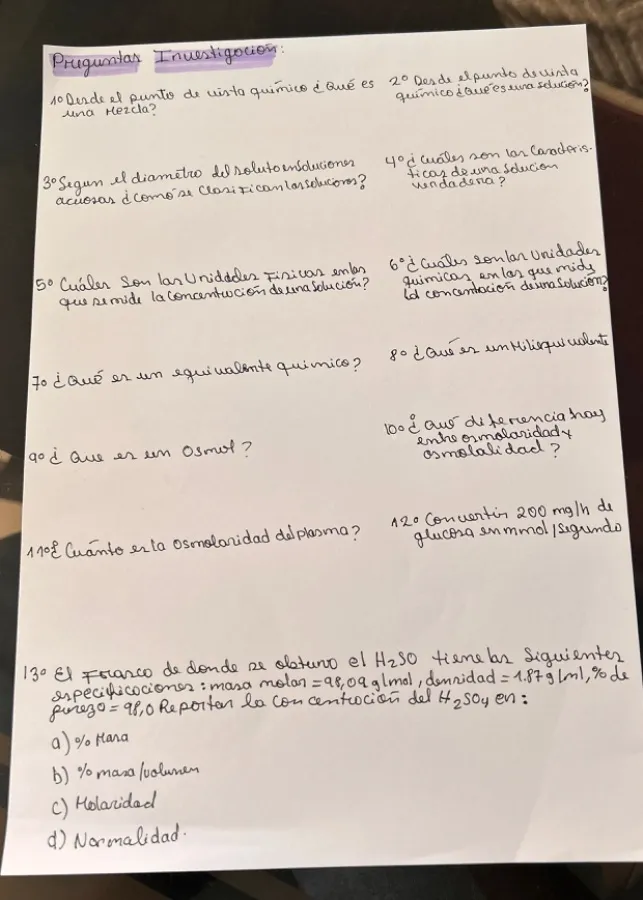 Preguntas Investigación:
1º Desde el punto de vista químico ¿Qué es
una Mezcla?
2º Desde el punto de vista
químico ¿Qué es una solución?
3º Segun el diametro del soluto en soluciones
acuosas ¿como se Clasifican las soluciones?
4º ¿Cuáles son las Caracteris-
ticas de una solucion
verdadera?
5º Cuáles Son las Unidades Fisicas en las
que se mide la Concentración de una solución?
6º ¿Cuáles son las Unidades
quimicas en las que mide
la concentración de una Solución?
7º ¿Qué es un equivalente quimico?
8º ¿Qué es un Miliequivalente
9º ¿Que es un Osmol?
10º ¿Qué diferencia hay
entre osmolaridad y
osmolalidad?
11º ¿Cuánto es la Osmolaridad del plasma?
12º Convertir 200 mg/h de
glucosa en mmol/segundo
13º El Frasco de donde se obtuvo el H₂SO tiene las Siguientes
especificaciones: masa molar = 98,09 g/mol, densidad = 1.87 g/ml, % de
pureza = 98,0 Reportar la concentración del H₂SO₄ en:
a) % Masa
b) % masa/volumen
c) Molaridad
d) Normalidad.